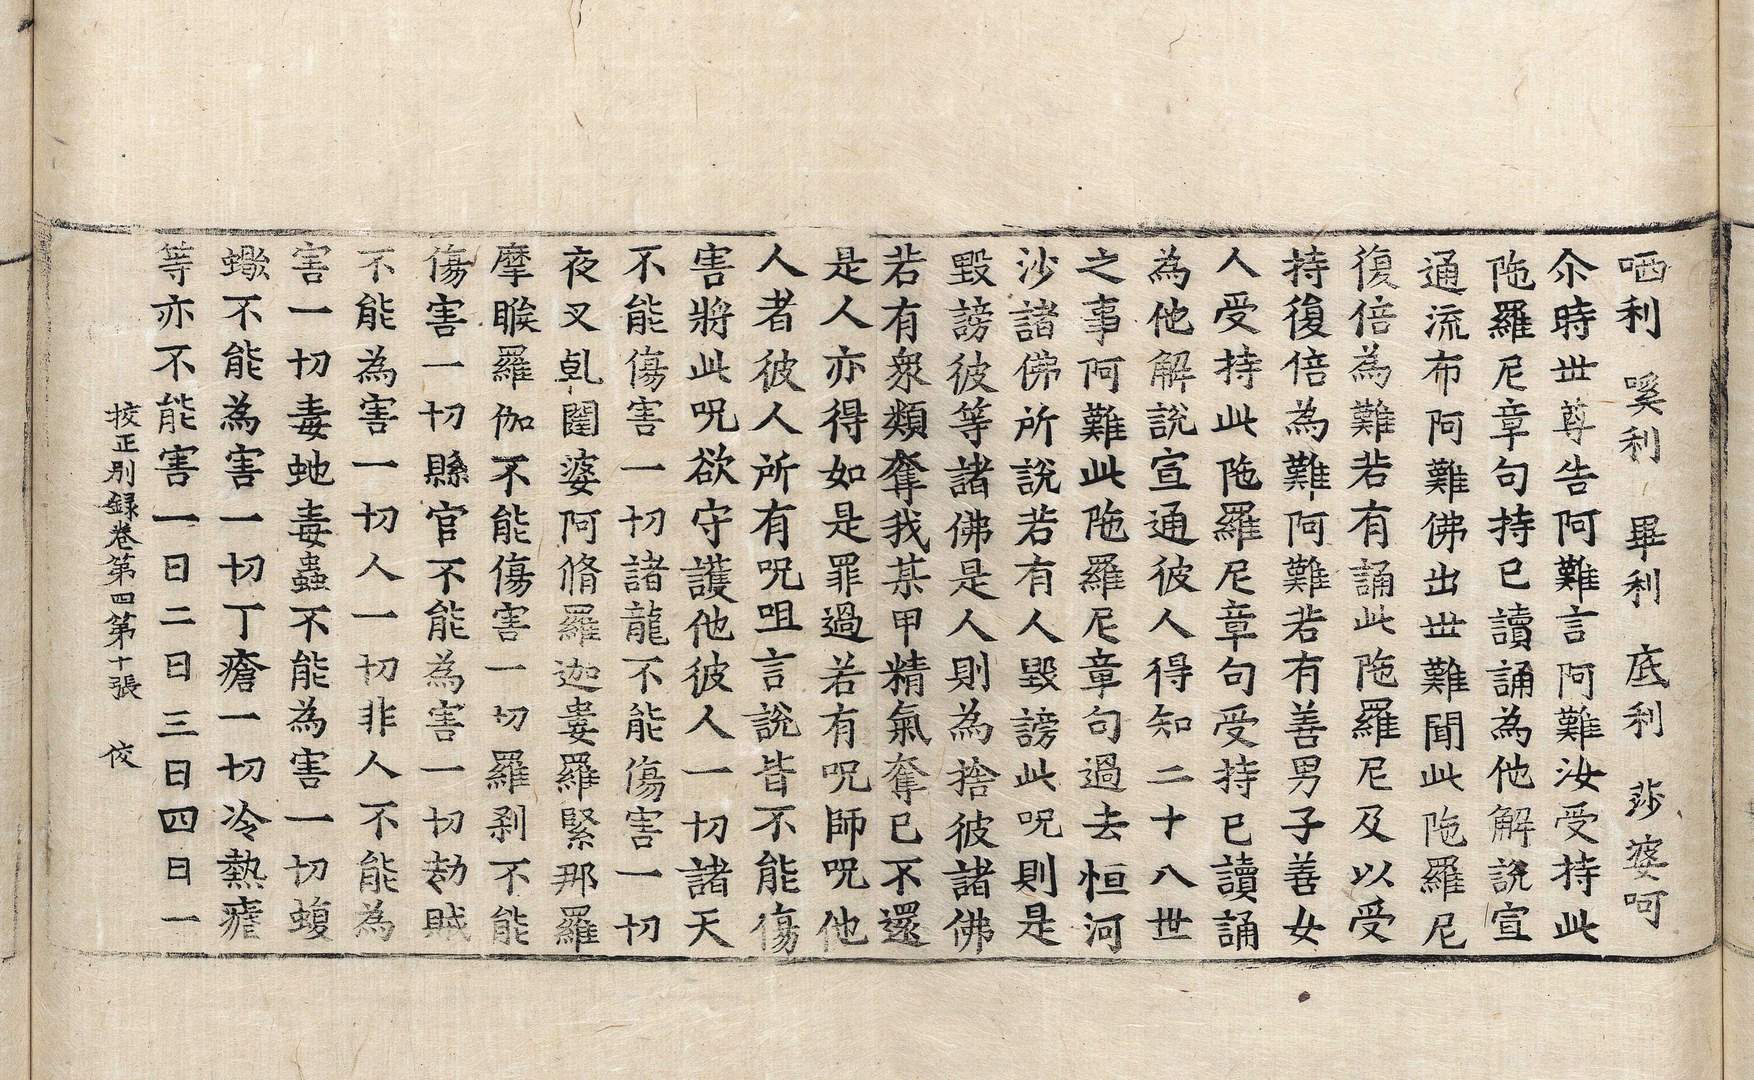 哂利　嗘利　畢利　底利　莎婆呵
尒時世尊告阿難言阿難汝受持此
陁羅尼章句持已讀誦為他解說宣
通流布阿難佛出世難聞此陁羅尼
復倍為難若有誦此陁羅尼及以受
持復倍為難阿難若有善男子善女
人受持此陁羅尼章句受持已讀誦
為他解說宣通彼人得知二十八世
之事阿難此陁羅尼章句過去恒河
沙諸佛所說若有人毀謗此呪則是
毀謗彼等諸佛是人則為捨彼諸佛
若有衆類奪我某甲精氣奪已不還
是人亦得如是罪過若有呪師呪他
人者彼人所有呪咀言說皆不能傷
害將此呪欲守護他彼人一切諸天
不能傷害一切諸龍不能傷害一切
夜叉乹闥婆阿脩羅迦婁羅緊那羅
摩睺羅伽不能傷害一切羅刹不能
傷害一切縣官不能為害一切劫賊
不能為害一切人一切非人不能為
害一切毒虵毒蟲不能為害一切蝮
蠍不能為害一切丁瘡一切冷熱瘧
等亦不能害一日二日三日四日一
挍正別録卷第四第十張　佼